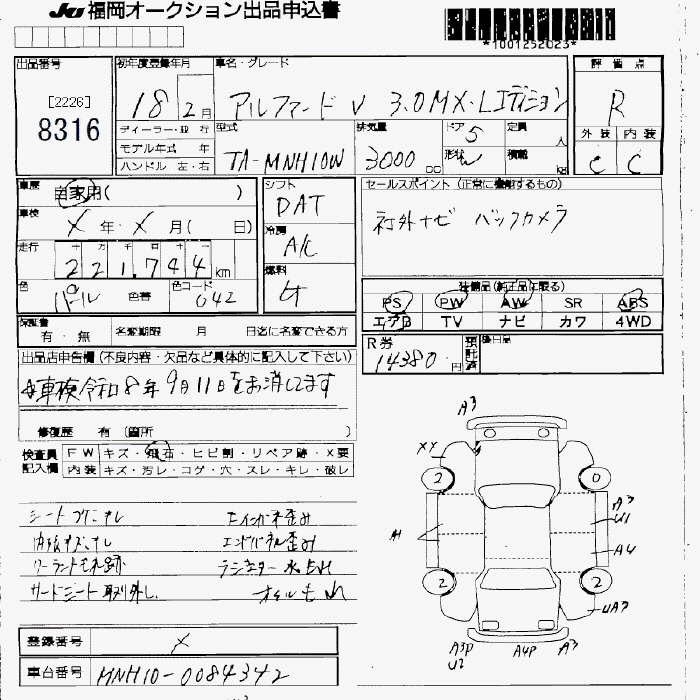 JU 福岡オークション出品申込書
*1001252023*
出品番号
[2226]
8316
初年度登録年月
18 2月
車名・グレード
アルファード V 3.0MX・Lエディション
評価点
R
外装 内装
C C
ディーラー・並行
モデル年式 年
ハンドル 左・右
型式
TA-MNH10W
排気量
3000 CC
ドア 5
形状 W
定員 人
積載 kg
車歴
自家用( )
車検
X 年・X 月( 日)
走行
221,744 km
色
パール 色替
色コード
042
シフト
DAT
冷房
A/C
燃料
ガ
セールスポイント (正常に機能するもの)
社外ナビ バックカメラ
装備品(純正品に限る)
PS PW AW SR ABS
エアB TV ナビ カワ 4WD
保証書
有・無
名変期限 月 日迄に名変できる方
R券
14380 円
預託済
後日品
出品店申告欄(不良内容・欠品など具体的に記入して下さい)
車検令和8年9月11日をお消してます
修復歴 有 (箇所 )
検査員
記入欄
FW キズ・飛石・ヒビ割・リペア跡・X要
内装 キズ・汚レ・コゲ・穴・スレ・キレ・破レ
エンドパネル歪み
クーラントモレ跡 ラジエター 水もれ
サードシート取り外し. オイルもれ
A3
XY
2
0
A3
U1
A4
2
2
UA3
A3P
U2
A4P
A3
登録番号 X
車台番号 MNH10-0084342